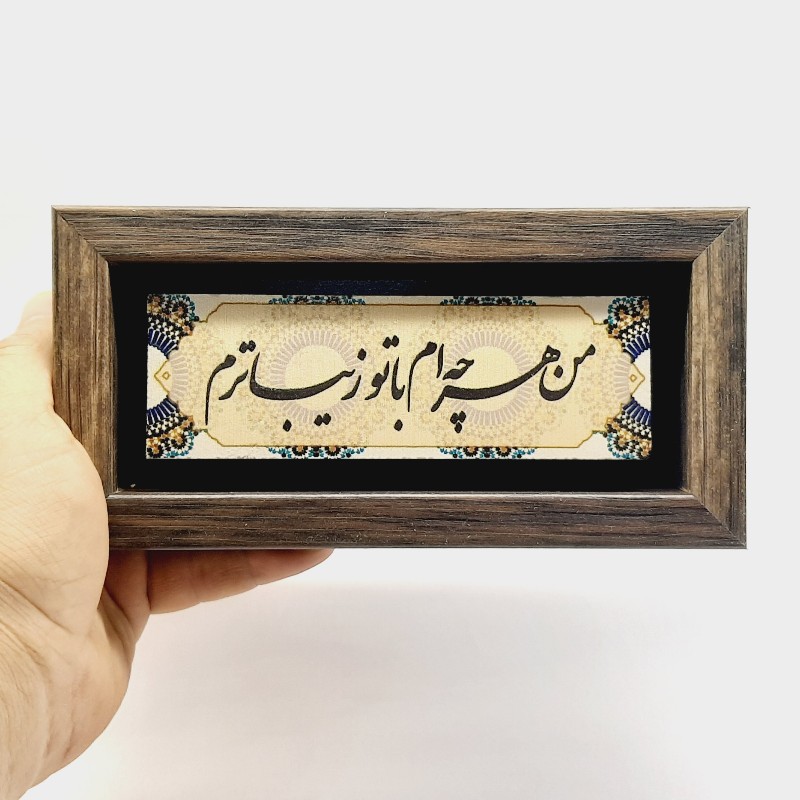 من هر چه ام با تو زیباترم